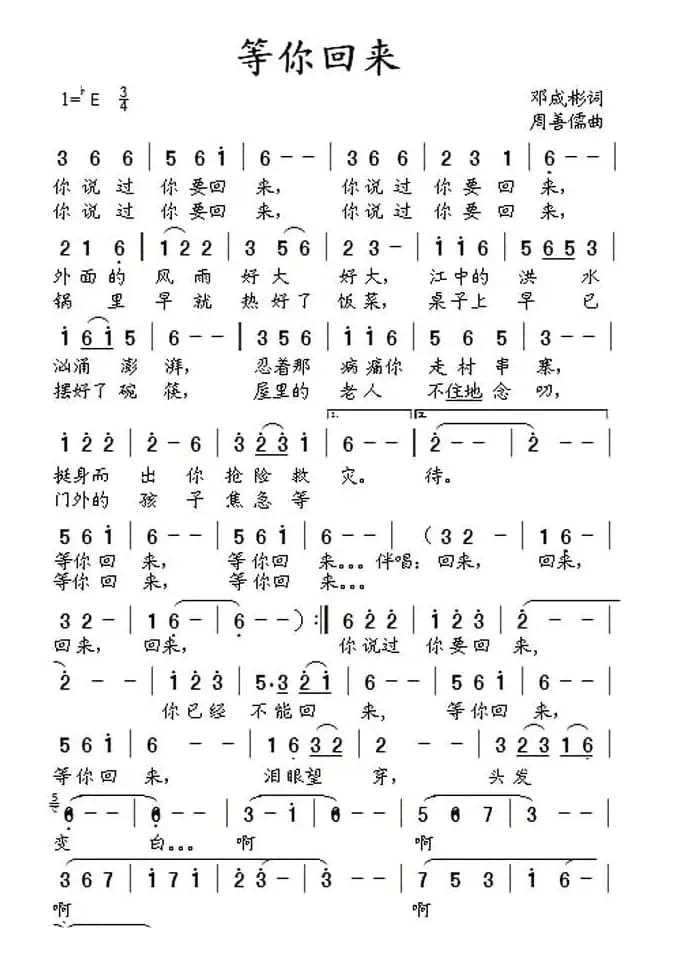 等你回来
1=♭E 3/4
邓成彬词
周善儒曲
3 6 6 | 5 6 i | 6 - - | 3 6 6 | 2 3 1 | 6 - - |
你说过 你要回 来， 你说过 你要回 来，
你说过 你要回 来， 你说过 你要回 来，
2 1 6 | 1 2 2 | 3 5 6 | 2 3 - | i i 6 | 5 6 5 3 |
外面的 风雨 好大 好大， 江中的 洪水
锅里 早就 热好了 饭菜， 桌子上 早已
i 6 i 5 | 6 - - | 3 5 6 | i i 6 | 5 6 5 | 3 - - |
汹涌澎 湃， 忍着那 病痛你 走村串 寨，
摆好了碗 筷， 屋里的 老人 不住地念 叨，
1. 2.
i 2 2 | 2 - 6 | 3 2 3 i | 6 - - | 2 - - | 2 - - |
挺身而 出你 抢险救 灾。 待。
门外的 孩子 焦急等
5 6 i | 6 - - | 5 6 i | 6 - - | (3 2 - | 1 6 - |
等你回 来， 等你回 来。。。伴唱：回来， 回来，
等你回 来， 等你回 来。。。
3 2 - | 1 6 - | 6 - - ) :| 6 2 2 | i 2 3 | 2 - |
回来， 回来， 你说过 你要回 来，
2 - - | i 2 3 | 5· 3 2 i | 6 - - | 5 6 i | 6 - - |
你已经 不能回 来， 等你回 来，
5 6 i | 6 - - | 1 6 3 2 | 2 - - | 3 2 3 1 6 |
等你回 来， 泪眼望 穿， 头发
5 6 - - | 6 - - | 3 - i | 6 - - | 5 6 7 | 3 - - |
变 白。。。 啊 啊
3 6 7 | i 7 i | 2 3 - | 3 - - | 7 5 3 | i 6 - |
啊 啊